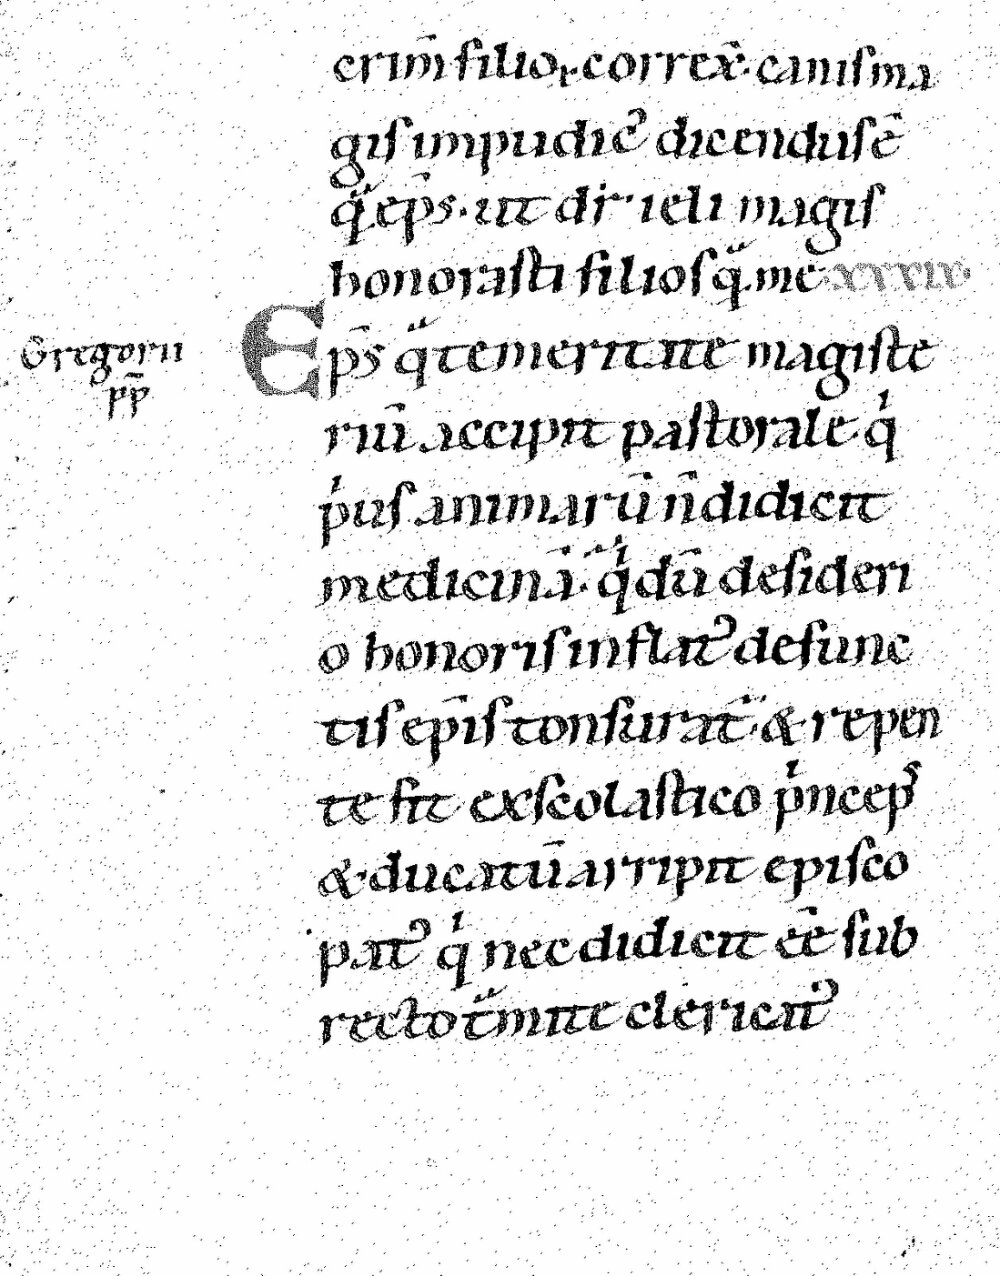 crim̄ filioꝝ correx̄. canis ma
gis impudic᷒ dicendus ē
qͣ̄ ep̄s. ut dr̄ ieli magis
honorasti filios qͣ̄ me xxxiiii.
Ep̄s qͣ temeritate magiste
riū accipit pastorale qͥ
pͥus animarū n̄ didicit
medicinā. qͥ dū desideri
o honoris inflat᷒ defunc
tis ep̄is tonsurat᷒ & repen
te fit ex scolastico pͥnceps
& ducatū arripit episco
pat᷒ qͥ nec didicit eē sub
recto tͣmite clericat᷒
Gregorii
pp̄